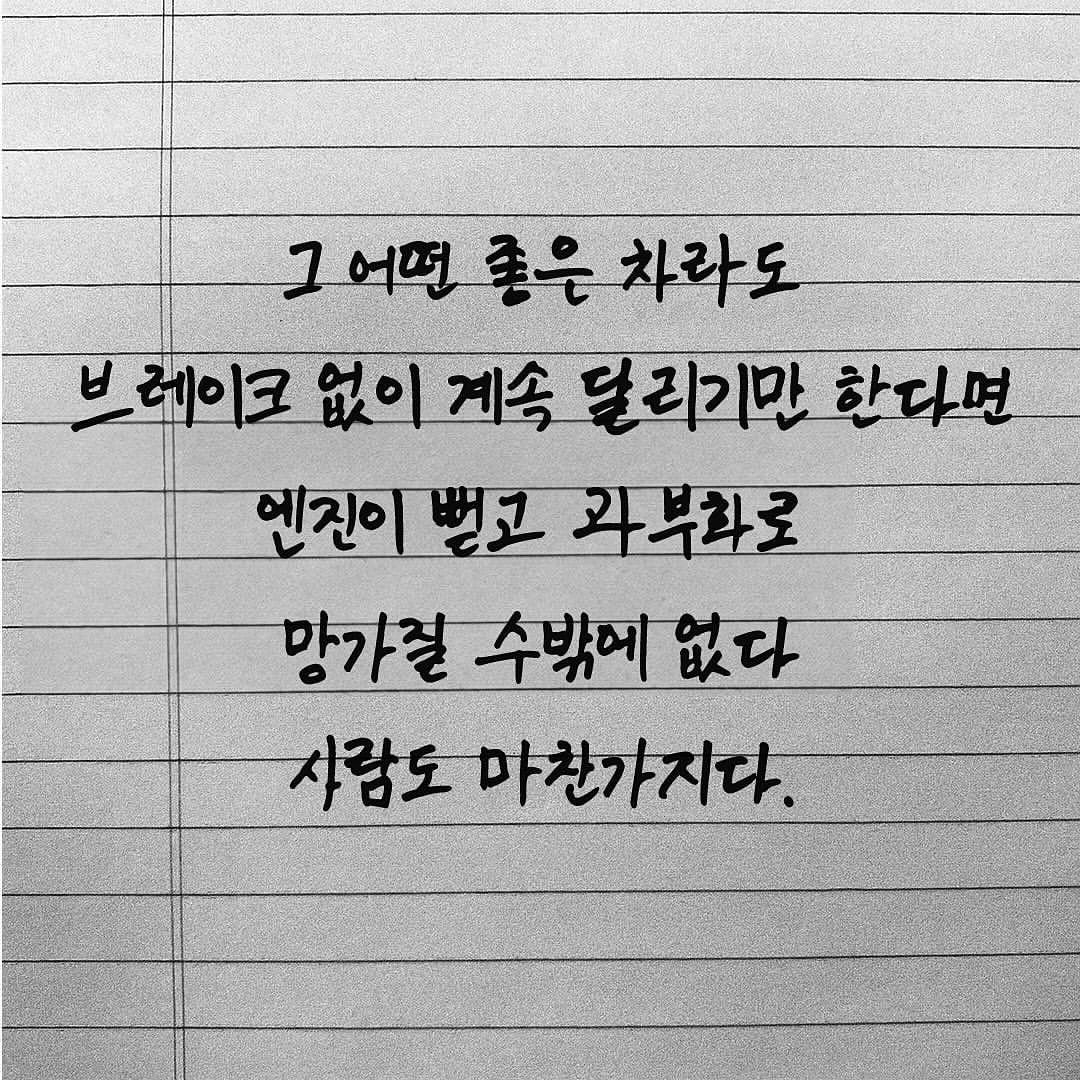 그 어떤 좋은 차라도
브레이크 없이 계속 달리기만 한다면
엔진이 뻗고 과부화로
망가질 수밖에 없다
사람도 마찬가지다.